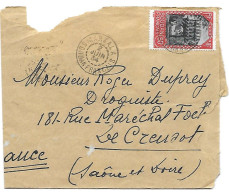 Monsieur Roger Duprey
Droguiste
181 - Rue Maréchal Foch
Le Creusot
(Saône et Loire)
France